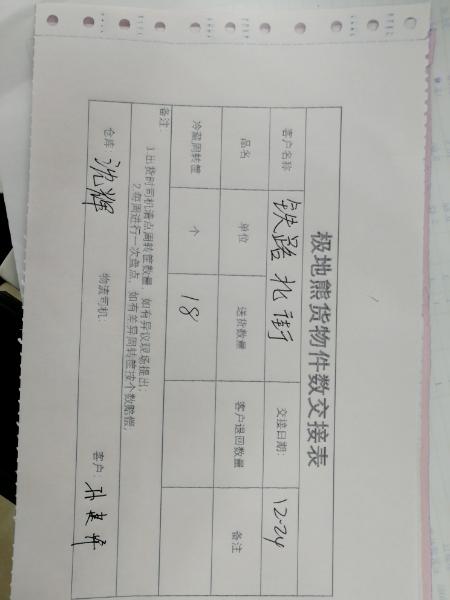 极地熊货物件数交接表
客户名称 铁路北街 交接日期: 12-24
品名 单位 送货数量 客户退回数量 备注
冷藏周转筐 个 18
备注:
1.出货时司机清点周转筐数量,如有异议现场提出;
2.每周进行一次盘点,如有差异周转筐按个数赔偿;
仓库: 沈辉 物流司机: 客户: 孙